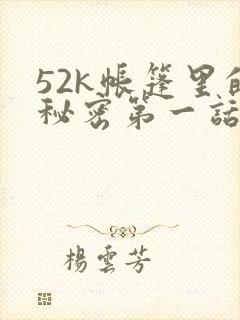 52k帳篷里的
秘密第一話
楊雲芳